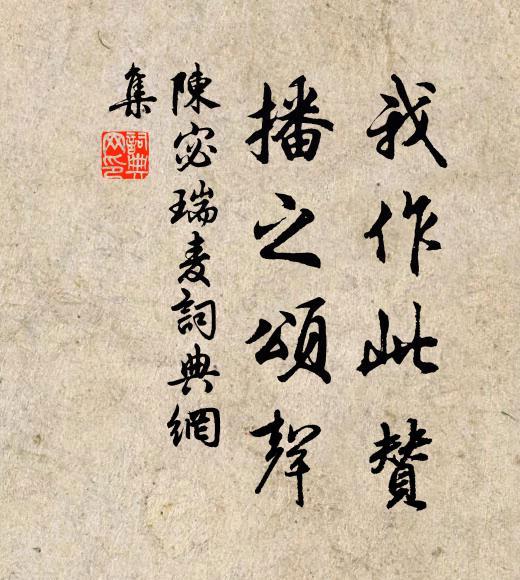 我作此贊
播之頌聲
陳宓瑞麦詞典網
集
詞典
网印